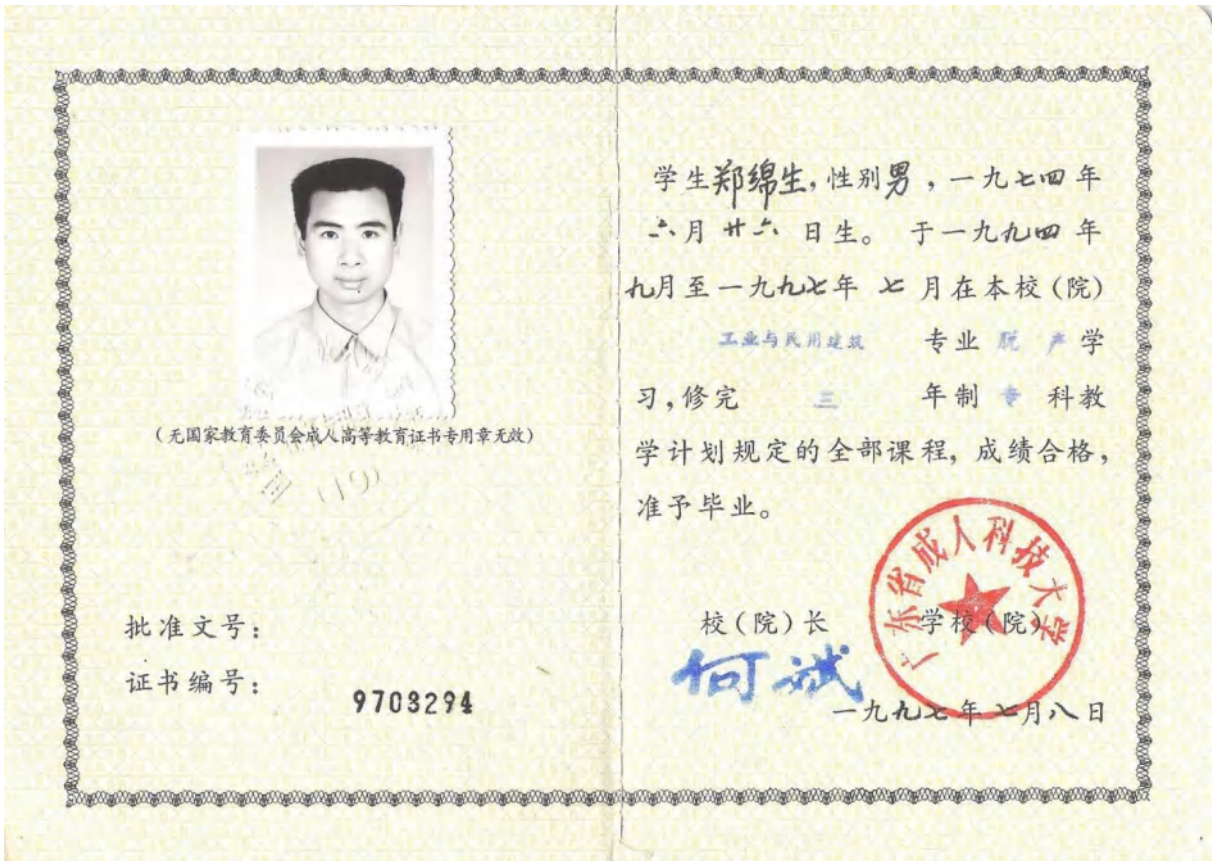 （无国家教育委员会成人高等教育证书专用章无效）
(19)
批准文号：
证书编号：
9703294
学生郑绵生，性别男，一九七四年
六月廿六日生。于一九九四年
九月至一九九七年七月在本校（院）
工业与民用建筑 专业脱产学
习，修完 三 年制专科教
学计划规定的全部课程，成绩合格，
准予毕业。
广东省成人科技大学
校（院）长 学校（院）
何斌
一九九七年七月八日